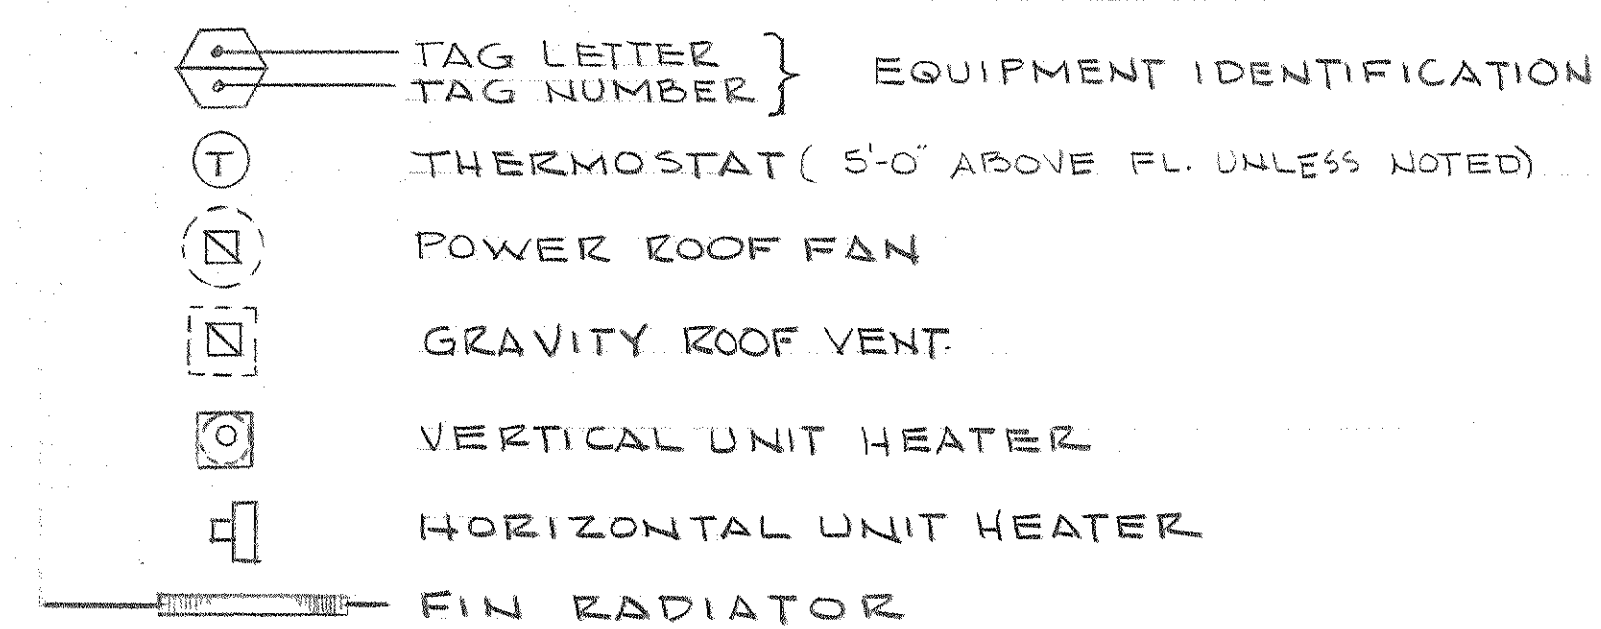 TAG LETTER
TAG NUMBER } EQUIPMENT IDENTIFICATION
T THERMOSTAT ( 5'-0" ABOVE FL. UNLESS NOTED)
POWER ROOF FAN
GRAVITY ROOF VENT.
VERTICAL UNIT HEATER
HORIZONTAL UNIT HEATER
FIN RADIATOR